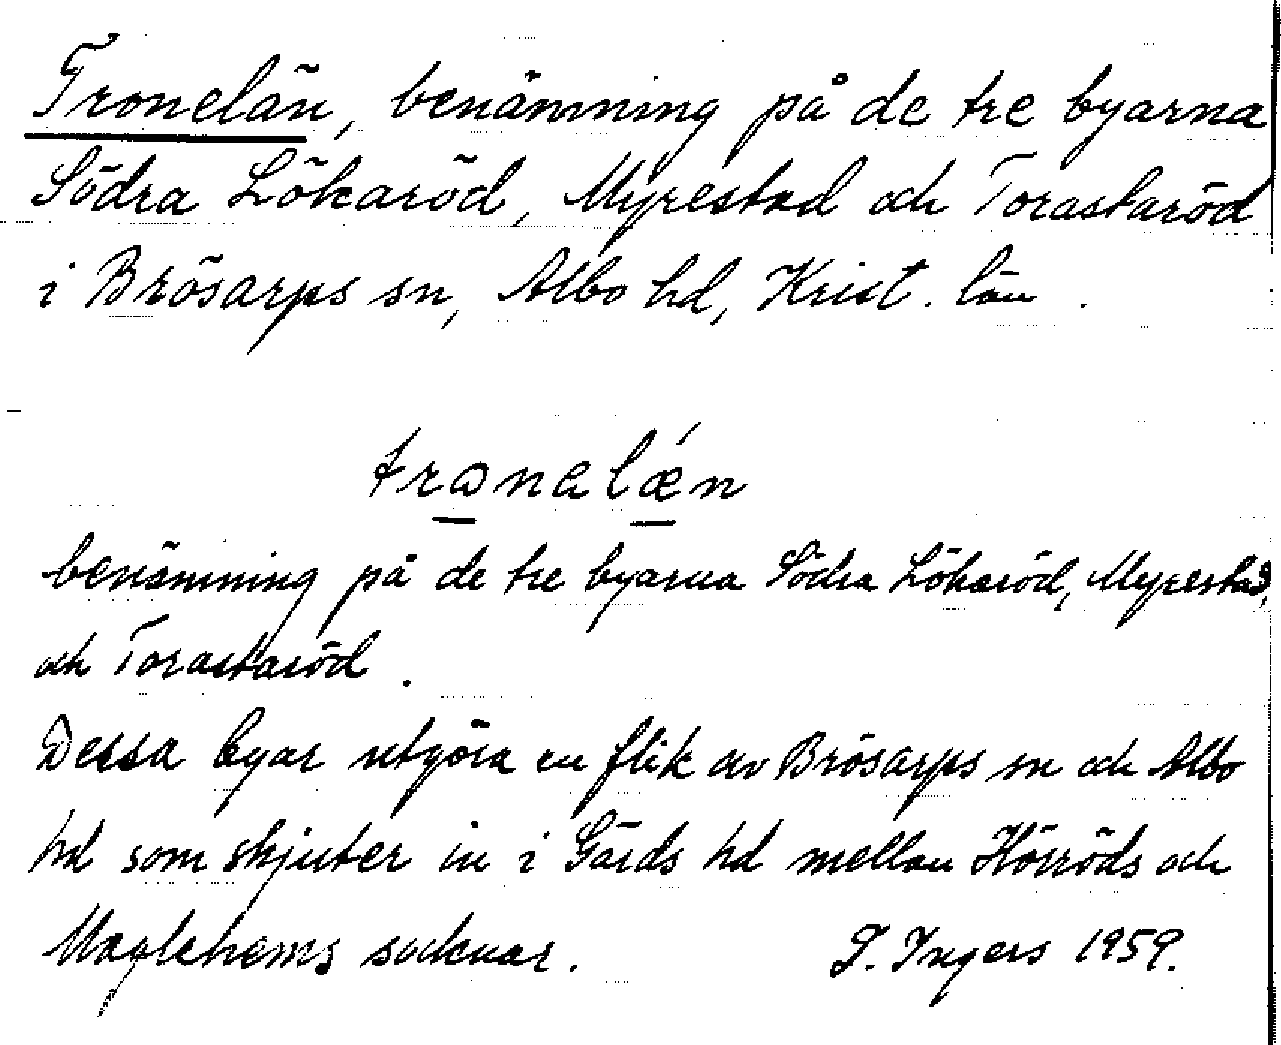 Tronelän, benämning på de tre byarna
Södra Lökaröd, Myrestad och Torastaröd
i Brösarps sn, Albo hd, Krist. län.
tronəlǽn
benämning på de tre byarna Södra Lökaröd, Myrestad,
och Torastaröd.
Dessa byar utgöra en flik av Brösarps sn och Albo
hd som skjuter in i Gärds hd mellan Hörröds och
Maglehems socknar. I. Ingers 1959.